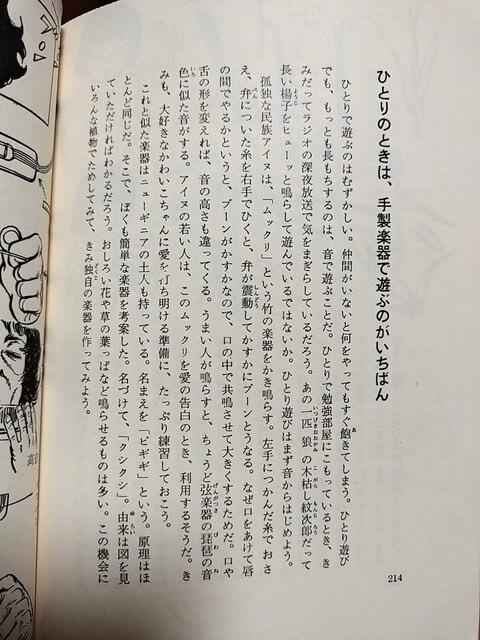 ひとりのときは、手製楽器で遊ぶのがいちばん
ひとりで遊ぶのはむずかしい。仲間がいないと何をやってもすぐ飽きてしまう。ひとり遊び
でも、もっとも長もちするのは、音で遊ぶことだ。ひとりで勉強部屋にこもっているとき、き
みだってラジオの深夜放送で気をまぎらしているだろう。あの一匹狼の木枯し紋次郎だって
長い楊子をヒューッと鳴らして遊んでいるではないか。ひとり遊びはまず音からはじめよう。
孤独な民族アイヌは、「ムックリ」という竹の楽器をかき鳴らす。左手につかんだ糸でおさ
え、弁についた糸を右手でひくと、弁が震動してかすかにブーンとうなる。なぜ口をあけて唇
の間でやるかというと、ブーンがかすかなので、口の中で共鳴させて大きくするためだ。口や
舌の形を変えれば、音の高さも違ってくる。うまい人が鳴らすと、ちょうど弦楽器の琵琶の音
色に似た音がする。アイヌの若い人は、このムックリを愛の告白のとき、利用するそうだ。き
みも、大好きなかわいこちゃんに愛を打ち明ける準備に、たっぷり練習しておこう。
これと似た楽器はニューギニアの土人も持っている。名まえを「ビギギ」という。原理はほ
とんど同じだ。そこで、ぼくも簡単な楽器を考案した。名づけて、「クシクシ」。由来は図を見
ていただければわかるだろう。おしろい花や草の葉っぱなど鳴らせるものは多い。この機会に
いろんな植物でためしてみて、きみ独自の楽器を作ってみよう。
214